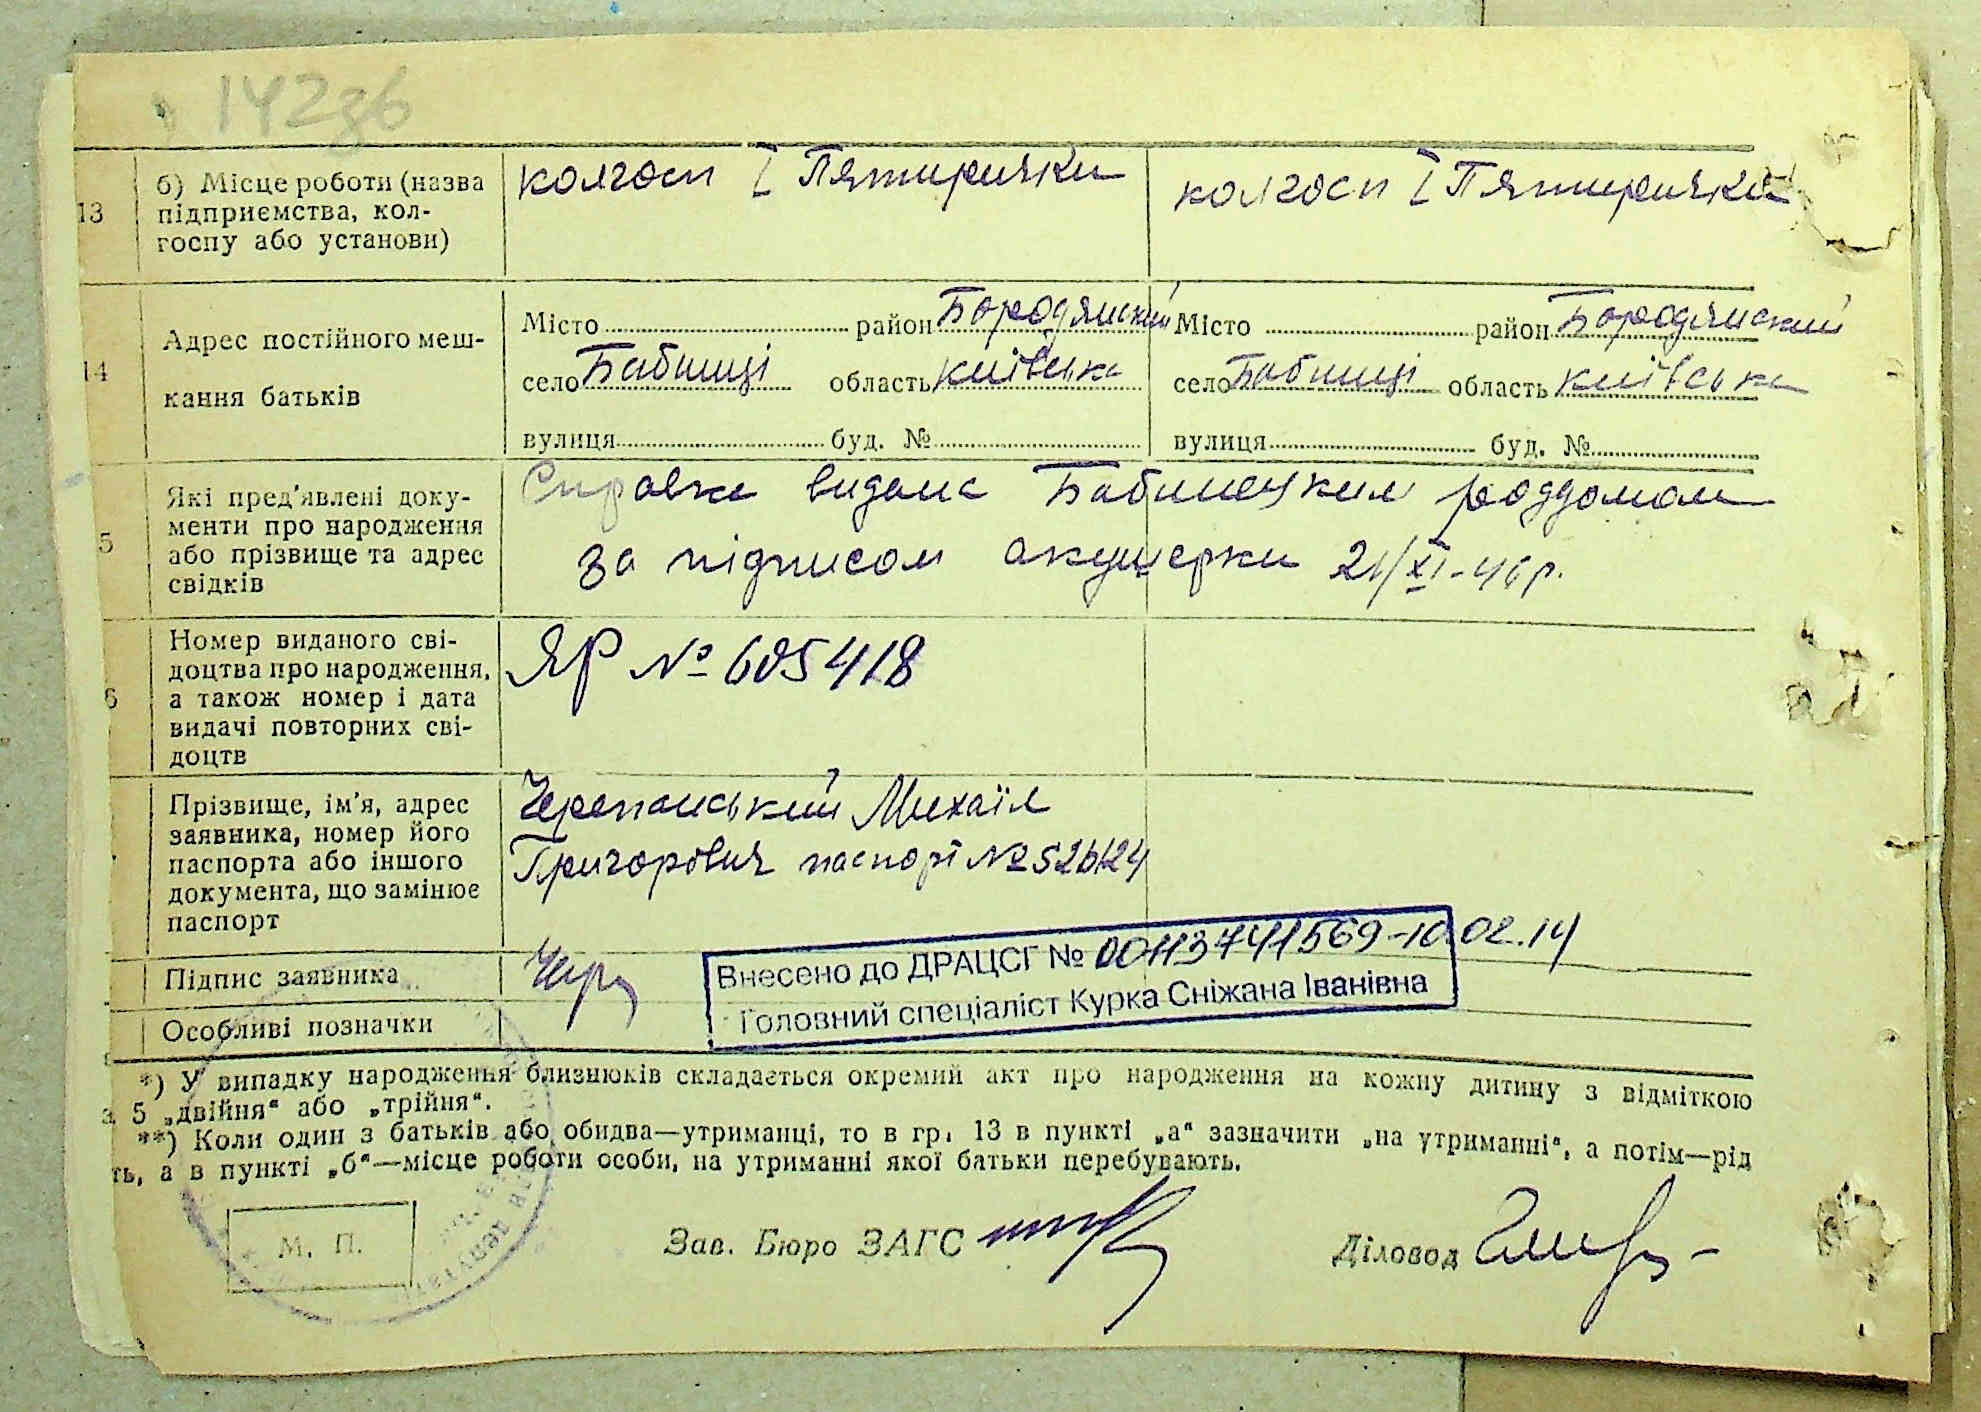 142зв
13 б) Місце роботи (назва підприємства, колгоспу або установи)
колгосп І Пятирички
колгосп І Пятирички
14 Адрес постійного мешкання батьків
Місто район Бородянский
село Бабинці область київська
вулиця буд. №
Місто район Бородянский
село Бабинці область київська
вулиця буд. №
5 Які пред'явлені документи про народження або прізвище та адрес свідків
Справка видана Бабинецким роддомом
за підписом акушерки 21/XI-46р.
6 Номер виданого свідоцтва про народження, а також номер і дата видачі повторних свідоцтв
ЯР № 605418
Прізвище, ім'я, адрес заявника, номер його паспорта або іншого документа, що замінює паспорт
Черепанський Михаїл
Григорович паспорт № 526124
Підпис заявника Чер
Внесено до ДРАЦСГ № 00113741569-10.02.14
Головний спеціаліст Курка Сніжана Іванівна
Особливі позначки
*) У випадку народження близнюків складається окремий акт про народження на кожну дитину з відміткою
5 „двійня“ або „трійня“.
**) Коли один з батьків або обидва—утриманці, то в гр. 13 в пункті „а“ зазначити „на утриманні“, а потім—рід
ть, а в пункті „б“—місце роботи особи, на утриманні якої батьки перебувають.
М. П.
Зав. Бюро ЗАГС
Діловод